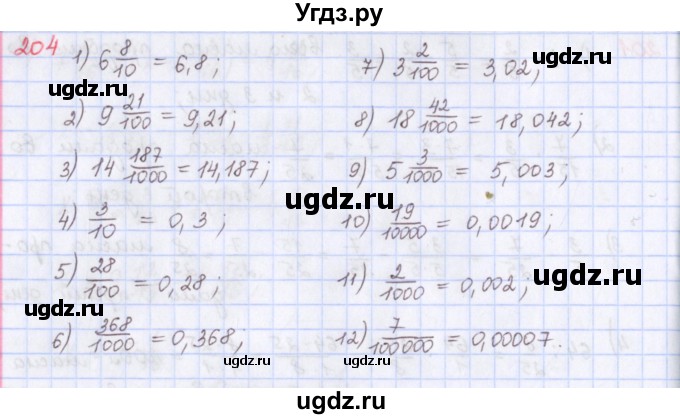 Угдз.ру
204
1) 6 8/10 = 6,8;
2) 9 21/100 = 9,21;
3) 14 187/1000 = 14,187;
4) 3/10 = 0,3;
5) 28/100 = 0,28;
6) 368/1000 = 0,368;
7) 3 2/100 = 3,02;
8) 18 42/1000 = 18,042;
9) 5 3/1000 = 5,003;
10) 19/10000 = 0,0019;
11) 2/1000 = 0,002;
12) 7/100000 = 0,00007.
ugdz.ru
ugdz.ru
ugdz.ru
ugdz.ru
ugdz.ru
ugdz.ru
ugdz.ru
ugdz.ru
ugdz.ru
ugdz.ru
ugdz.ru
ugdz.ru
ugdz.ru
ugdz.ru